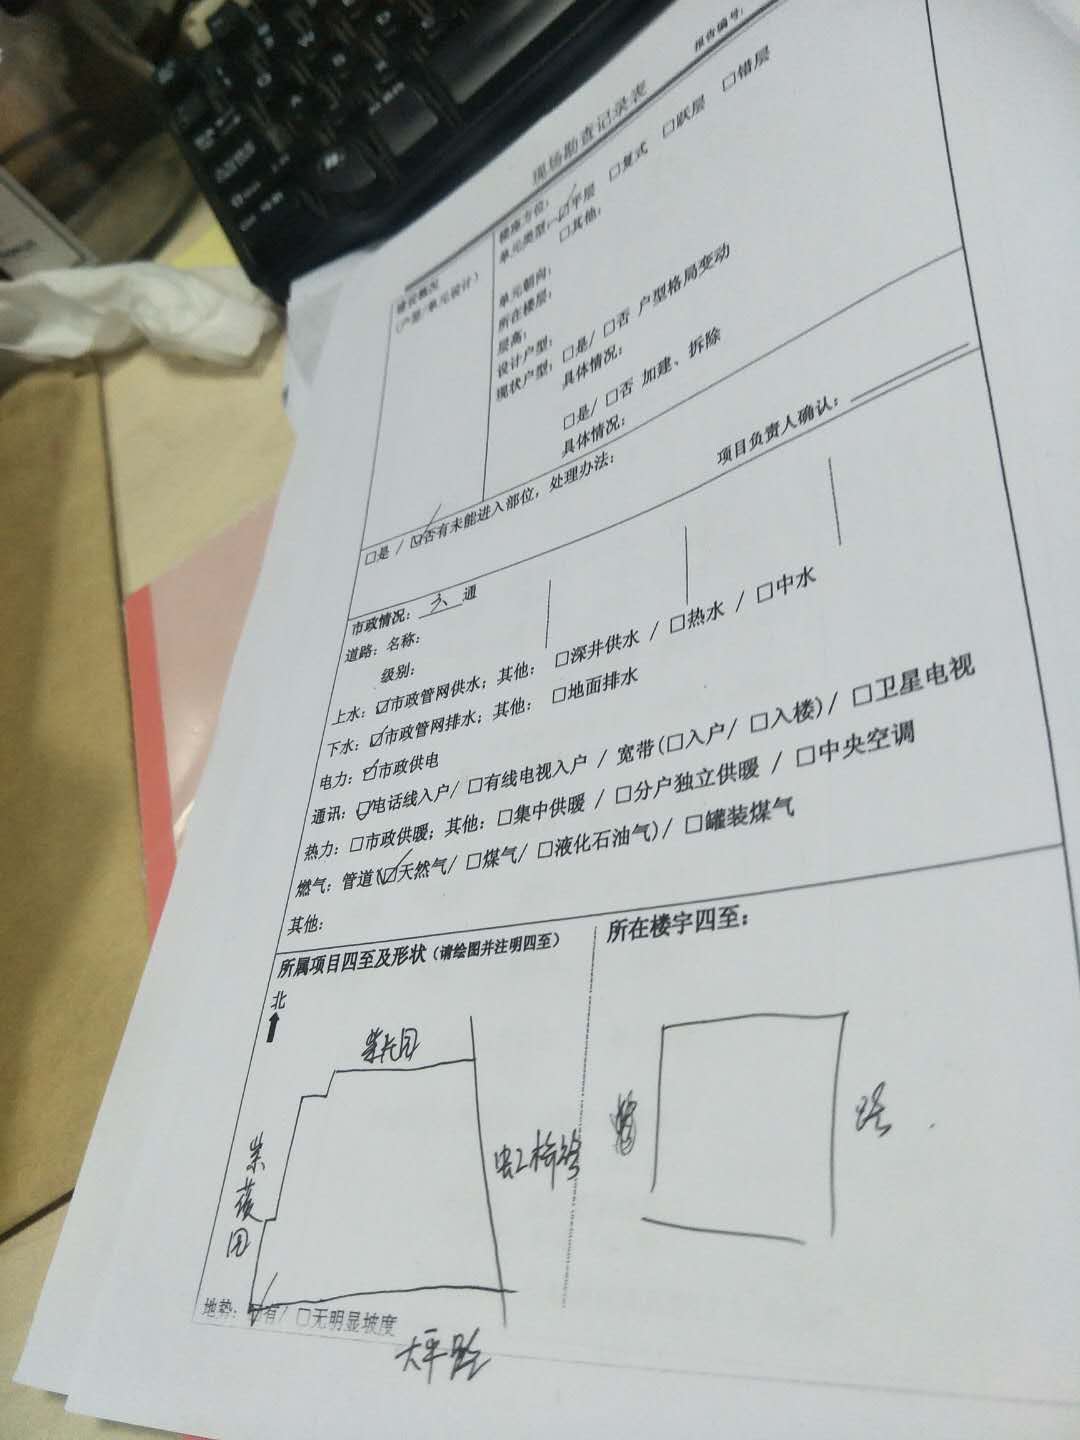 报告编号:
现场勘查记录表
建设概况
(户型/单元设计)
楼座方位:
单元类型: ☑平层 □复式 □跃层 □错层
□其他:
单元朝向:
所在楼层:
层高:
设计户型:
现状户型: □是/ □否 户型格局变动
具体情况:
□是/ □否 加建、拆除
具体情况:
□是 / ☑否有未能进入部位, 处理办法:
项目负责人确认:
市政情况: 六 通
道路: 名称:
级别:
上水: ☑市政管网供水; 其他: □深井供水 / □热水 / □中水
下水: ☑市政管网排水; 其他: □地面排水
电力: ☑市政供电
通讯: ☑电话线入户/ □有线电视入户 / 宽带(□入户/ □入楼)/ □卫星电视
热力: □市政供暖; 其他: □集中供暖 / □分户独立供暖 / □中央空调
燃气: 管道(☑天然气/ □煤气/ □液化石油气)/ □罐装煤气
其他:
所属项目四至及形状 (请绘图并注明四至)
所在楼宇四至:
北
虹桥路
路
紫薇园
地势: ☑有/ □无明显坡度
大平路